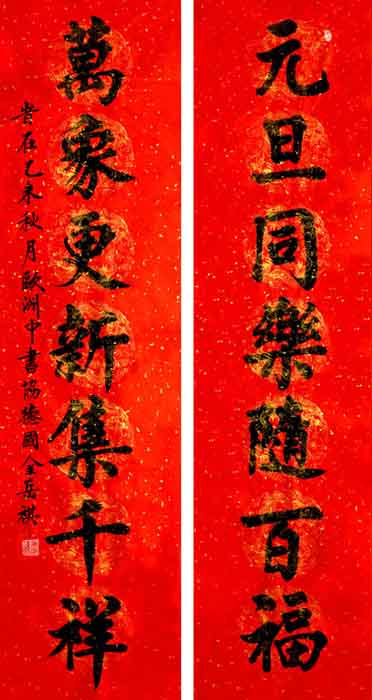 元旦同樂隨百福
萬象更新集千祥
岩在乙未秋月歐洲中書協德國金岳祺